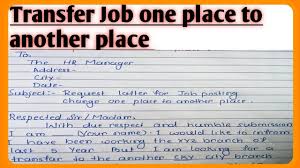 Transfer Job one place to
another place
To,
The HR Manager
Address-
City-
Date-
Subject:- Request letter for Job posting
change one place to another place.
Respected Sir/Madam,
With due respect and humble submission
I am (Your name). I would like to inform
I have been working the XYZ branch of
last 5 Year. But I am looking for a
transfer to the another city branch